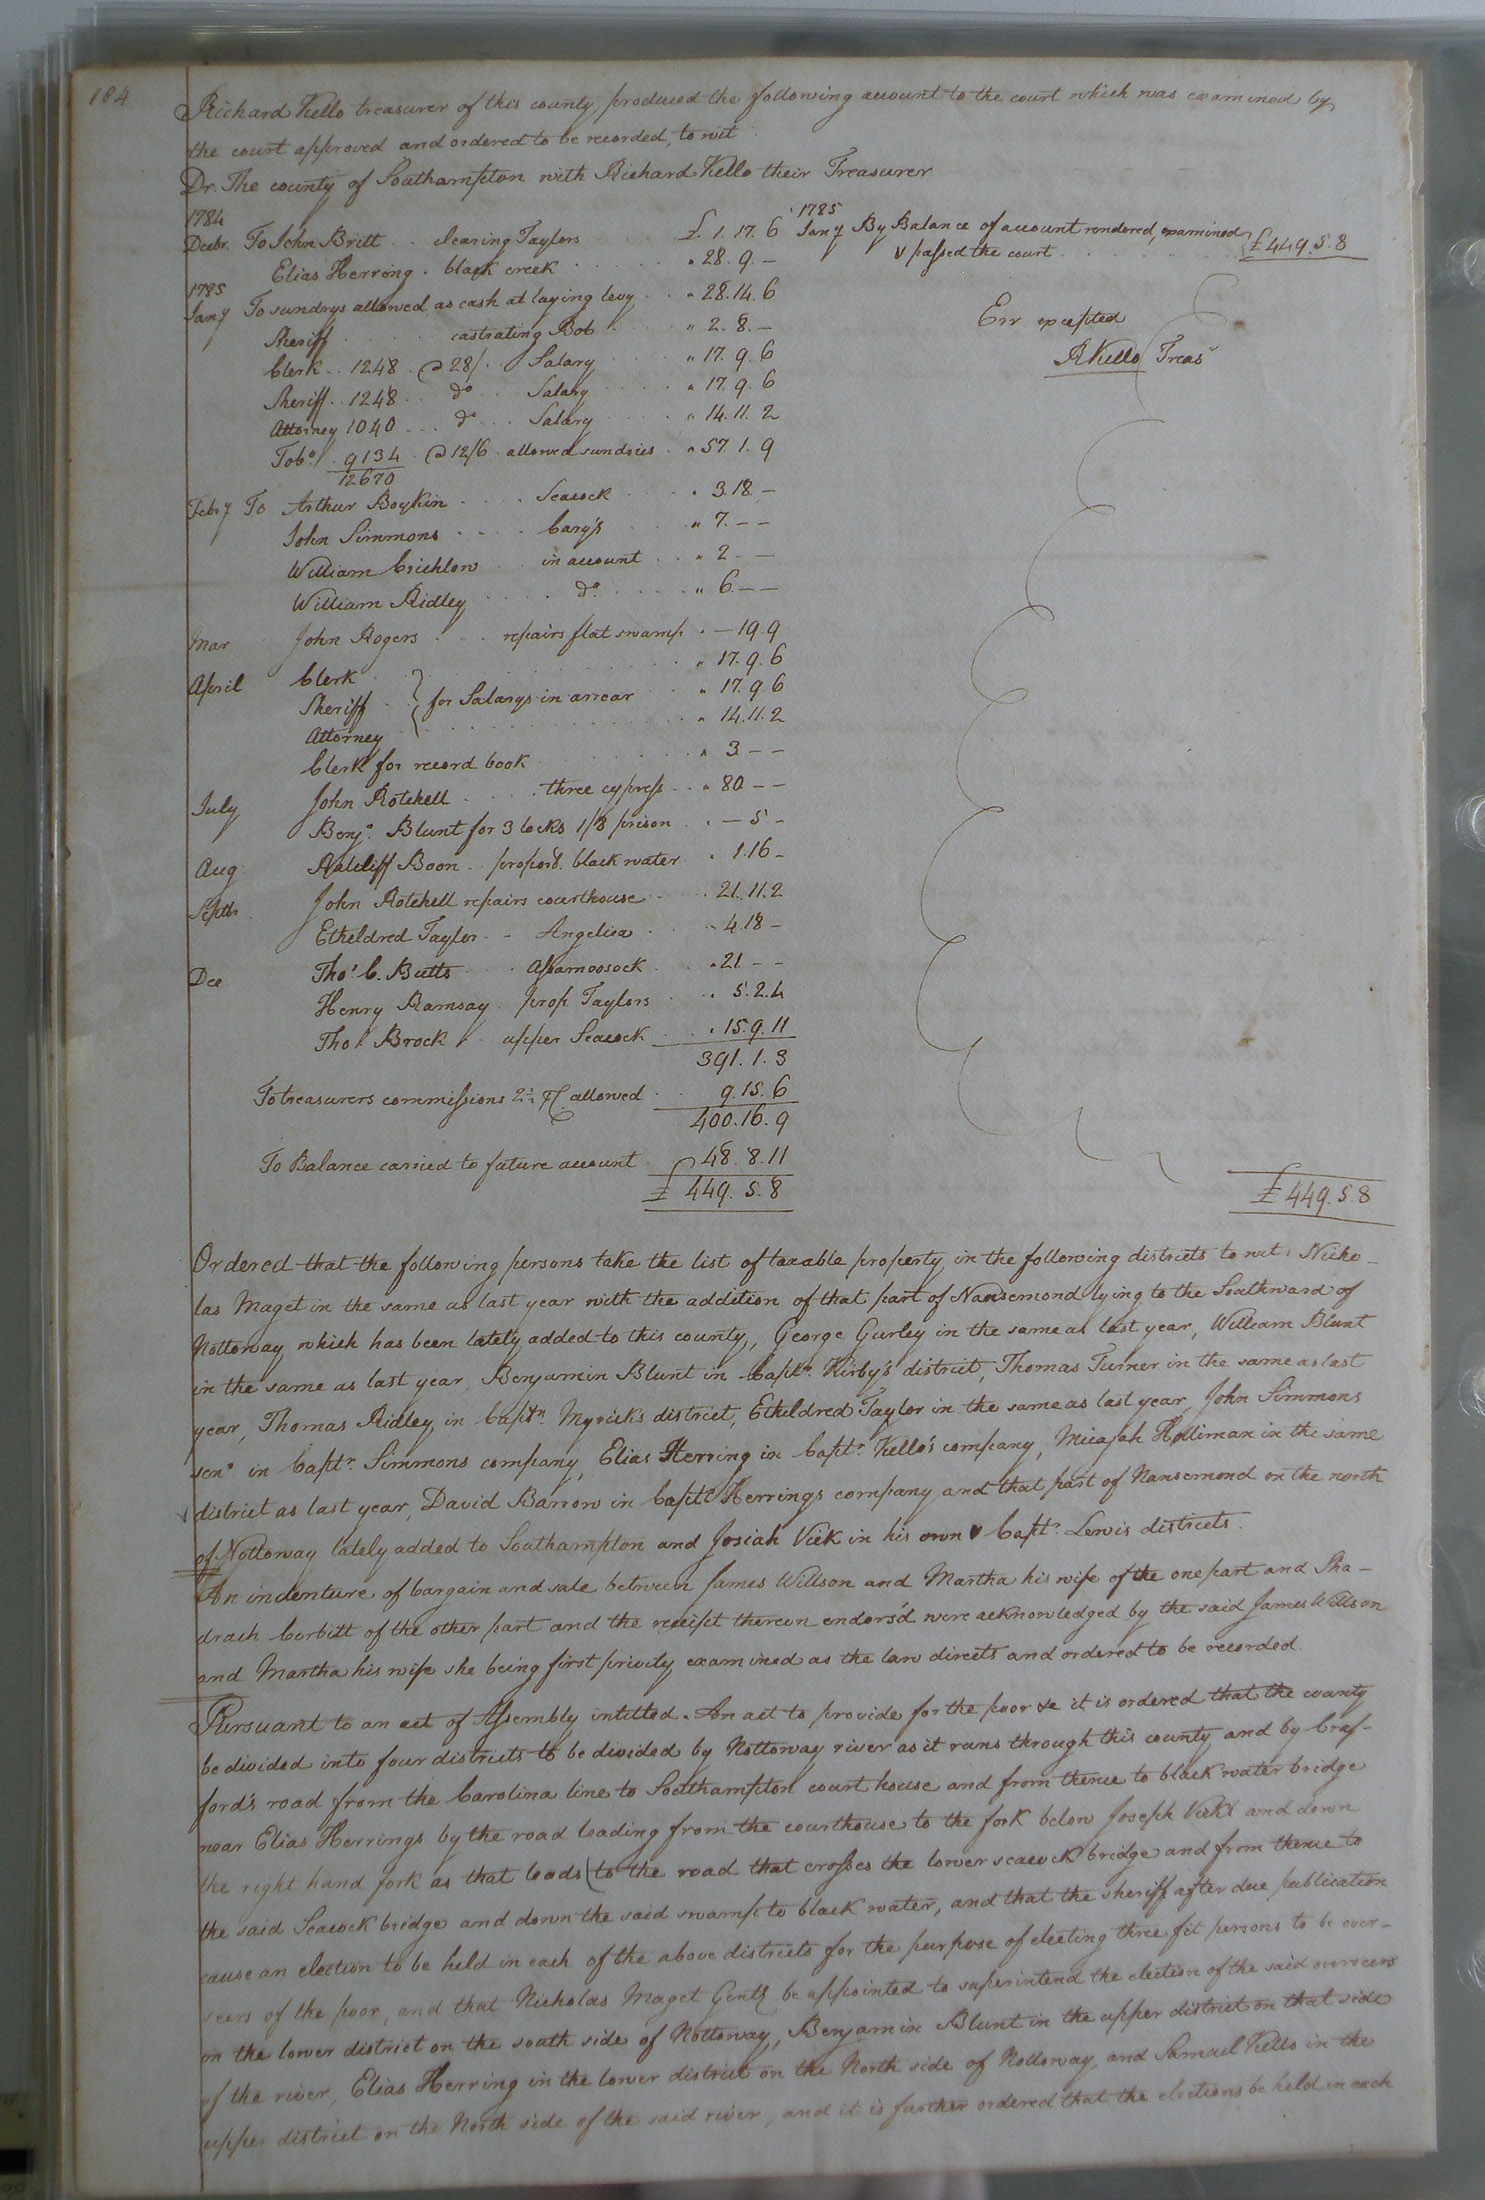 184
Richard Kello treasurer of this county, produced the following account to the court which was examined by
the court approved and ordered to be recorded, to wit
Dr. The county of Southampton with Richard Kello their Treasurer
1784
Decbr. To John Britt . . clearing Taylors £. 1. 17. 6
Elias Herring . black creek " 28. 9. –
1785
Jany By Balance of account rendered, examined
& passed the court £449. 5. 8
1785
Jany To sundrys allowed as cash at laying levy . . " 28. 14. 6
Sheriff castrating Bob " 2. 8. –
Err excepted
Clerk . . 1248 . @ 28/ . Salary " 17. 9. 6
RKello Treas
Sheriff . . 1248 . . do . . . Salary " 17. 9. 6
Attorney 1040 . . . do . . . Salary " 14. 11. 2
Tobo. 9134 . @ 12/6 . allowed sundries . " 57. 1. 9
12670
Febry To Arthur Boykin . . . . Seacock " 3. 18 –
John Simmons . . . . Cary's " 7. – –
William Crichlow . . in account . . " 2 – –
William Ridley . . . . do. " 6. – –
Mar John Rogers . . . repairs flat swamp . " – 19. 9
April Clerk " 17. 9. 6
Sheriff } for Salarys in arrear " 17. 9. 6
Attorney " 14. 11. 2
Clerk for record book " 3 – –
July John Rotchell . . . . three cypress . . " 80 – –
Benjn. Blunt for 3 locks 1/8 prison . . – 5 –
Aug Ratcliff Boon . . propord. black water . " 1. 16 –
Septbr. John Rotchell repairs courthouse . . . 21. 11. 2
Etheldred Taylor . – Angelica . . . 4. 18 –
Dec Thos. C. Butts . . . Assamoosock . . " 21 – –
Henry Ramsay . prop. Taylors . . . 5. 2. 4
Thos. Brock . upper Seacock . . 15. 9. 11
391. 1. 3
To treasurers commissions 2½ ⅌C allowed . . 9. 15. 6
400. 16. 9
To Balance carried to future account . 48. 8. 11
£ 449. 5. 8
£ 449. 5. 8
Ordered that the following persons take the list of taxable property in the following districts to wit: Nicho-
las Maget in the same as last year with the addition of that part of Nansemond lying to the Southward of
Nottoway which has been lately added to this county, George Gurley in the same as last year, William Blunt
in the same as last year, Benjamin Blunt in Captn. Kirby's district, Thomas Turner in the same as last
year, Thomas Ridley in Captn. Myricks district, Etheldred Taylor in the same as last year, John Simmons
senr. in Captn. Simmons company, Elias Herring in Captn. Kello's company, Micajah Holliman in the same
district as last year, David Barrow in Captn Herrings company and that part of Nansemond on the north
of Nottoway lately added to Southampton and Josiah Vick in his own & Captn. Lewis districts.
An indenture of bargain and sale between James Willson and Martha his wife of the one part and Sha-
drach Corbitt of the other part and the receipt thereon endors'd were acknowledged by the said James Willson
and Martha his wife she being first privily examined as the law directs and ordered to be recorded.
Pursuant to an act of Assembly intitled . An act to provide for the poor &c it is ordered that the county
be divided into four districts to be divided by Nottoway river as it runs through this county and by Craf-
ford's road from the Carolina line to Southampton court house and from thence to black water bridge
near Elias Herrings by the road leading from the courthouse to the fork below Joseph Vicks and down
the right hand fork as that leads to the road that crosses the lower seacock bridge and from thence to
the said Seacock bridge and down the said swamp to black water, and that the sheriff after due publication
cause an election to be held in each of the above districts for the purpose of electing three fit persons to be over-
seers of the poor, and that Nicholas Maget Gentl. be appointed to superintend the election of the said overseers
in the lower district on the south side of Nottoway, Benjamin Blunt in the upper district on that side
of the river, Elias Herring in the lower district on the North side of Nottoway, and Samuel Kello in the
upper district on the North side of the said river, and it is further ordered that the elections be held in each